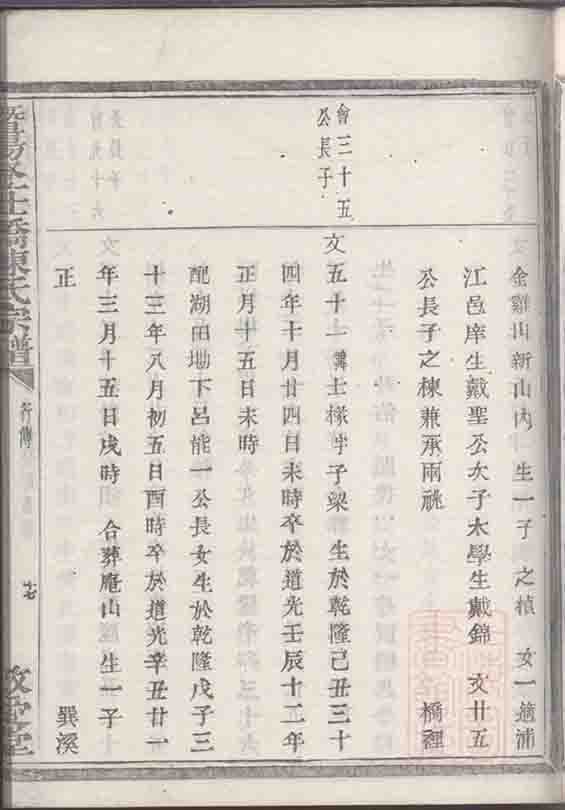 金雞山新山內 生一子 之楨 女一適浦
江邑庠生戴聖公次子太學生戴錦 文廿五
公長子之棟兼承兩祧 橋裡
會三十五
公長子
文五十一 諱士樑字子梁 生於乾隆己丑三十
四年十月廿四日未時卒於道光壬辰十二年
正月十五日未時
配湖田坳下呂能一公長女生於乾隆戊子三
十三年八月初五日酉時卒於道光辛丑廿一
年三月十五日戌時 合葬庵山 生一子
正 巽溪
士橋陳氏宗譜
行傳